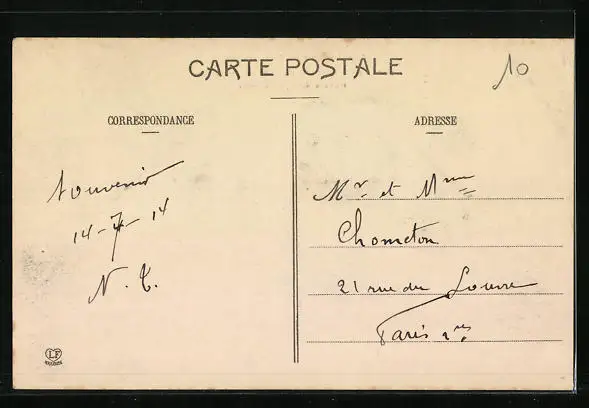 CARTE POSTALE
10
CORRESPONDANCE
Souvenir
14-7-14
N. T.
ADRESSE
Mr et Mme
Chometon
21 rue du Louvre
Paris
LF